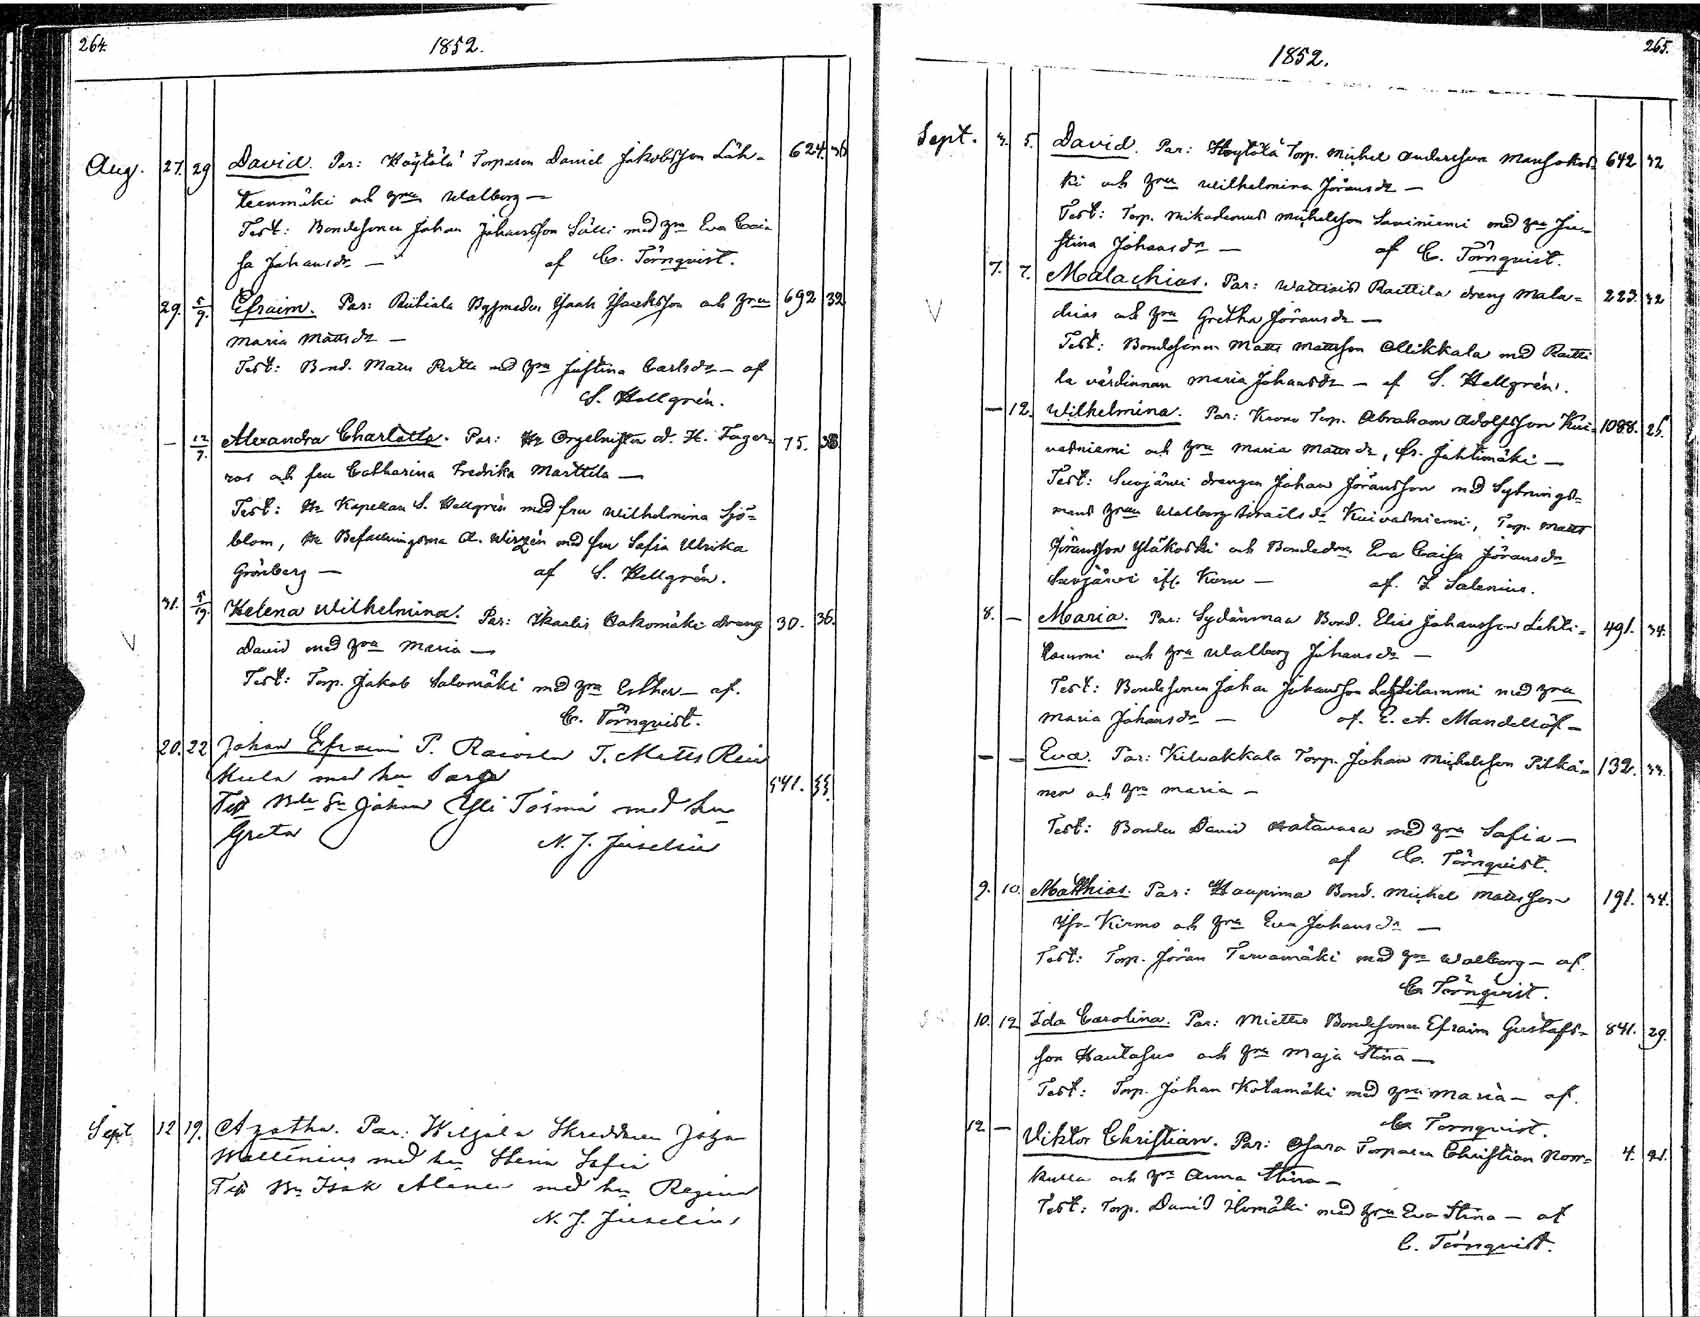 264.
1852.
Aug. 27. 29 David. Par: Höytölä Torparen Daniel Jakobsson Läh- 624. 36
teenmäki och hru Walborg —
Test: Bondesonen Johan Johansson Sälli med hru Eva Cai
sa Johansdr — af C. Törnqvist.
29. 5/9. Efraim. Par: Isaak Isaaksson och hru 692 32
Maria Mattsdr —
Test: Bond. Matts Pertt med hru Justina Carlsdr — af
S. Hellgrén.
— 12/9. Alexandra Charlotta. Par: Hr Orgelnisten A. H. Fager- 75. 38
ros och fru Catharina Fredrika Marttela —
Test: Hr Kapellan S. Hellgrén med fru Wilhelmina Sjö-
blom, Hr Befallningsma A. Wirzén med fru Sofia Ulrika
Grönberg — af S. Hellgrén.
31. 5/9. Helena Wilhelmina. Par: Ikalis Oakomäki dreng 30. 36.
David med hru Maria —
Test: Torp. Jakob Salomäki med hru Esther — af.
C. Törnqvist.
20. 22 Johan Efraim P. T. Matts
med hu 541. 33.
Test Johan Yli Törmä med hu
Greta
N. J. Juselius
Sept 12 19. Agatha. Par: Kiljala Skreddaren
Wallenius med hu Stina Sofia
Test Isak med hu Regina
N. J. Juselius
265.
1852.
Sept. 3. 5. David. Par: Höytölä Torp. Michel Andersson Mansokos- 642 32
ki och hru Wilhelmina Jöransdr —
Test: Torp. Nikodemus Michelsson Saviniemi med hru Ju-
stina Johansdr — af C. Törnqvist.
7. 7. Malachias. Par: Raittila dreng Mala- 223. 32
chias och hru Gretha Jöransdr —
Test: Bondesonen Matts Mattsson Mikkala med Raitti
la värdinnan Maria Johansdr — af S. Hellgrén.
— 12. Wilhelmina. Par: Krono Torp. Abraham Adolfsson Kui- 1088. 25.
vasniemi och hru Maria Mattsdr, fr. Jahtimäki —
Test: Suojärvi drengen Johan Jöransson med Sytnings-
mans hrun Walborg Israelsdr Kuivasniemi, Torp. Matts
Jöransson Yläkoski och Bondedra Eva Caisa Jöransdr
Suojärvi — af. Z Salenius.
8. — Maria. Par: Sydänmaa Bond. Elis Johansson Lehti- 491. 34.
lammi och hru Walborg Johansdr —
Test: Bondesonen Johan Johansson Lehtilammi med hru
Maria Johansdr — af. E. A. Mandellöf —
— — Eva. Par: Kilvakkala Torp. Johan Michelsson Pitkä- 132. 33.
nen och hru Maria —
Test: Bonden David Hatavara med hru Sofia —
af C. Törnqvist.
9. 10. Matthias. Par: Haapima Bond. Michel Mattsson 191. 34.
Kirmo och hru Eva Johansdr —
Test: Torp. Jöran Tervamäki med hru Walborg — af.
C. Törnqvist.
10. 12 Ida Carolina. Par: Miettis Bondesonen Efraim Gustafs- 841. 29.
son Hautasuo och hru Maja Stina —
Test: Torp. Johan Kotamäki med hru Maria — af.
C. Törnqvist.
12 — Viktor Christian. Par: Osara Torparen Christian Norr- 4. 21.
kulla och hru Anna Stina —
Test: Torp. David Ilomäki med hru Eva Stina — af
C. Törnqvist.